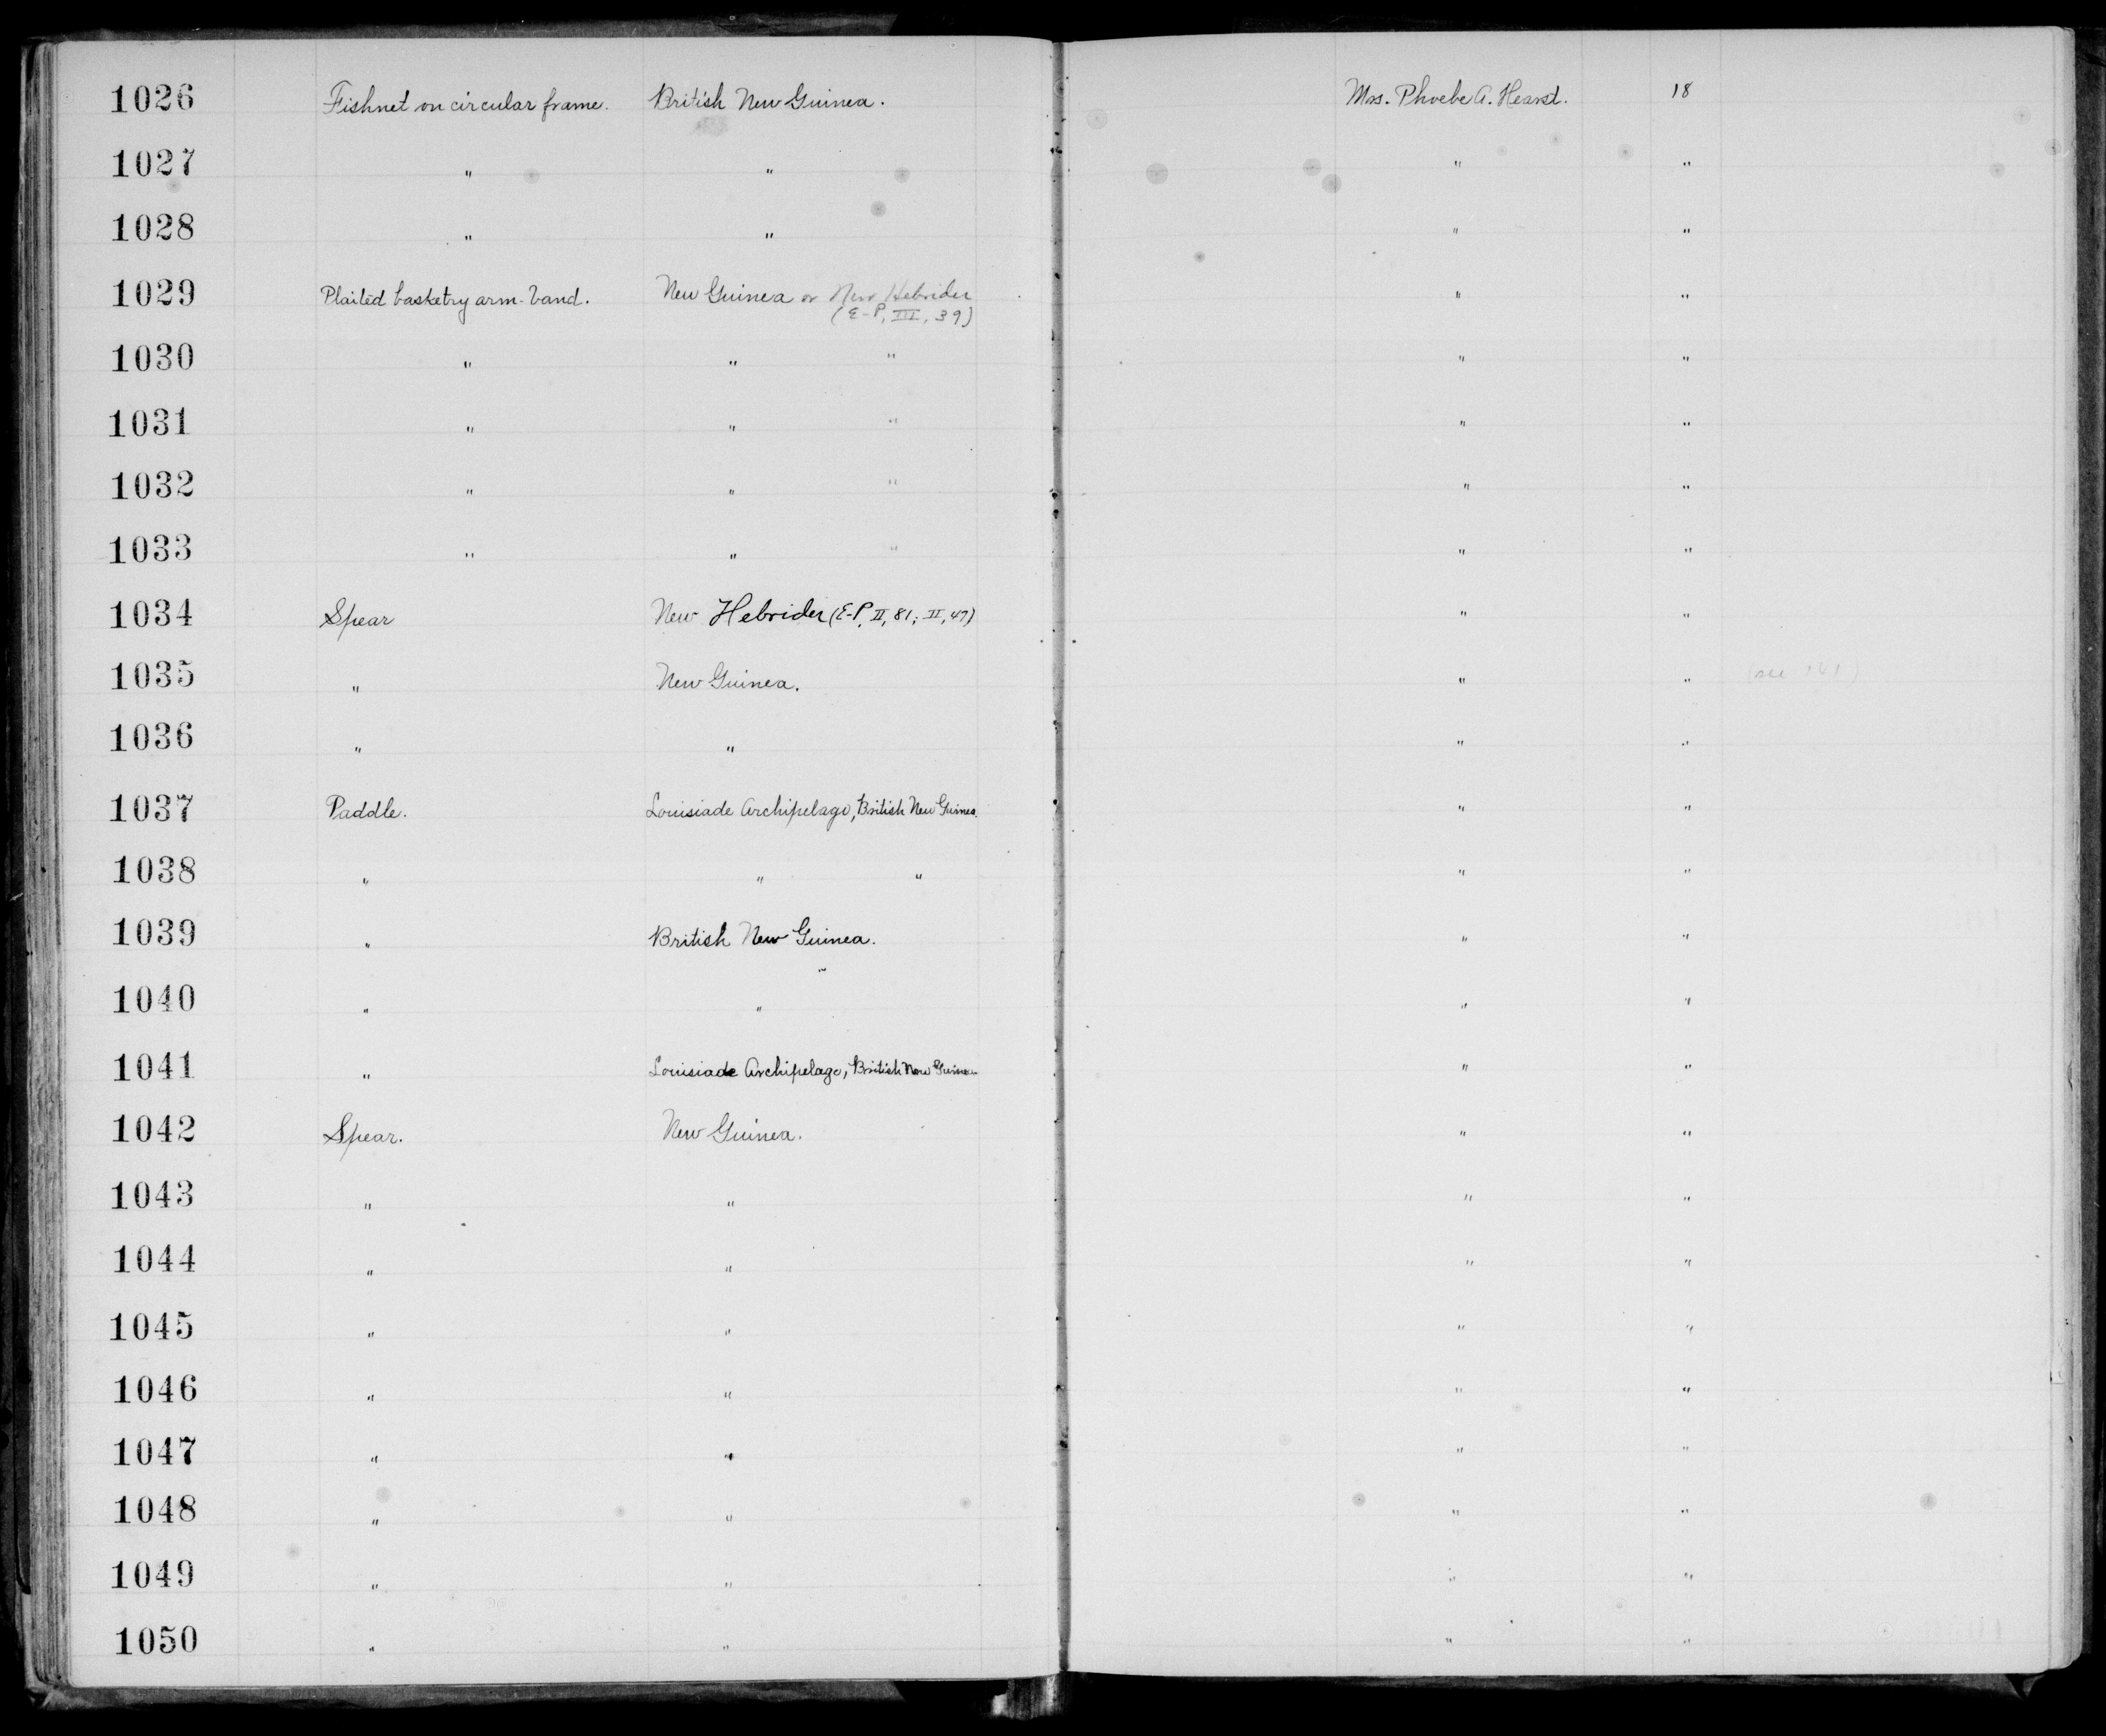 1026 Fishnet on circular frame. British New Guinea. Mrs. Phoebe A. Hearst. 18
1027 " " " "
1028 " " " "
1029 Plaited basketry arm-band. New Guinea or New Hebrides " "
(E-P, III, 39)
1030 " " " " "
1031 " " " " "
1032 " " " " "
1033 " " " " "
1034 Spear New Hebrides (E-P, II, 81; II, 47) " "
1035 " New Guinea. " " (see
1036 " " " "
1037 Paddle. Louisiade Archipelago, British New Guinea. " "
1038 " " " " "
1039 " British New Guinea. " "
1040 " " " "
1041 " Louisiade Archipelago, British New Guinea " "
1042 Spear. New Guinea. " "
1043 " " " "
1044 " " " "
1045 " " " "
1046 " " " "
1047 " " " "
1048 " " " "
1049 " " " "
1050 " " " "